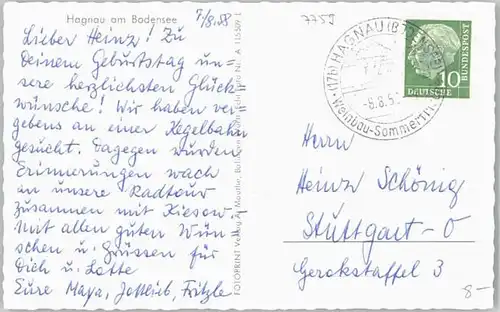 Hagnau am Bodensee
7/8.58
7759
Lieber Heinz! Zu
Deinem Geburtstag un=
sere herzlichsten Glück
wünsche! Wir haben ver
gebens an einer Kegelbahn
gesucht. Dagegen wurden
Erinnerungen wach
an unsere Radtour
zusammen mit Kiesow
Mit allen guten Wün
schen u. Grüssen für
Dich u. Lotte
Eure Maya, Gottlieb, Fritzle
FOTOPRINT Verlag
(17b) HAGNAU (BODENSEE)
-8.8.5
Weinbau-Sommerfr
10
DEUTSCHE
BUNDESPOST
Herrn
Heinz Schönig
Stuttgart-O
Gerokstaffel 3
8-